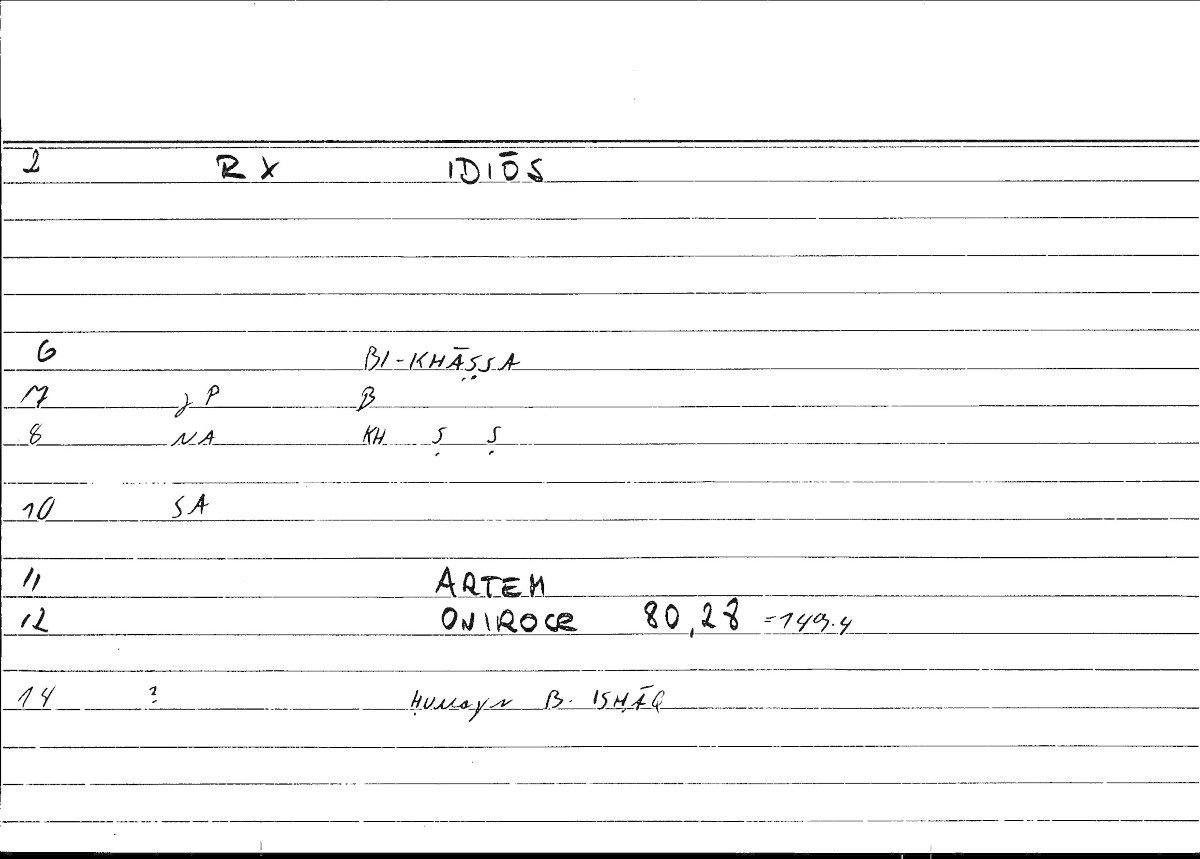 2 RX IDIŌS
6 BI-KHĀṢṢA
7 JP B
8 NA KH Ṣ Ṣ
10 SA
11 ARTEM
12 ONIROCR 80,28 =149.4
14 ? ḤUNAYN B. ISḤĀQ